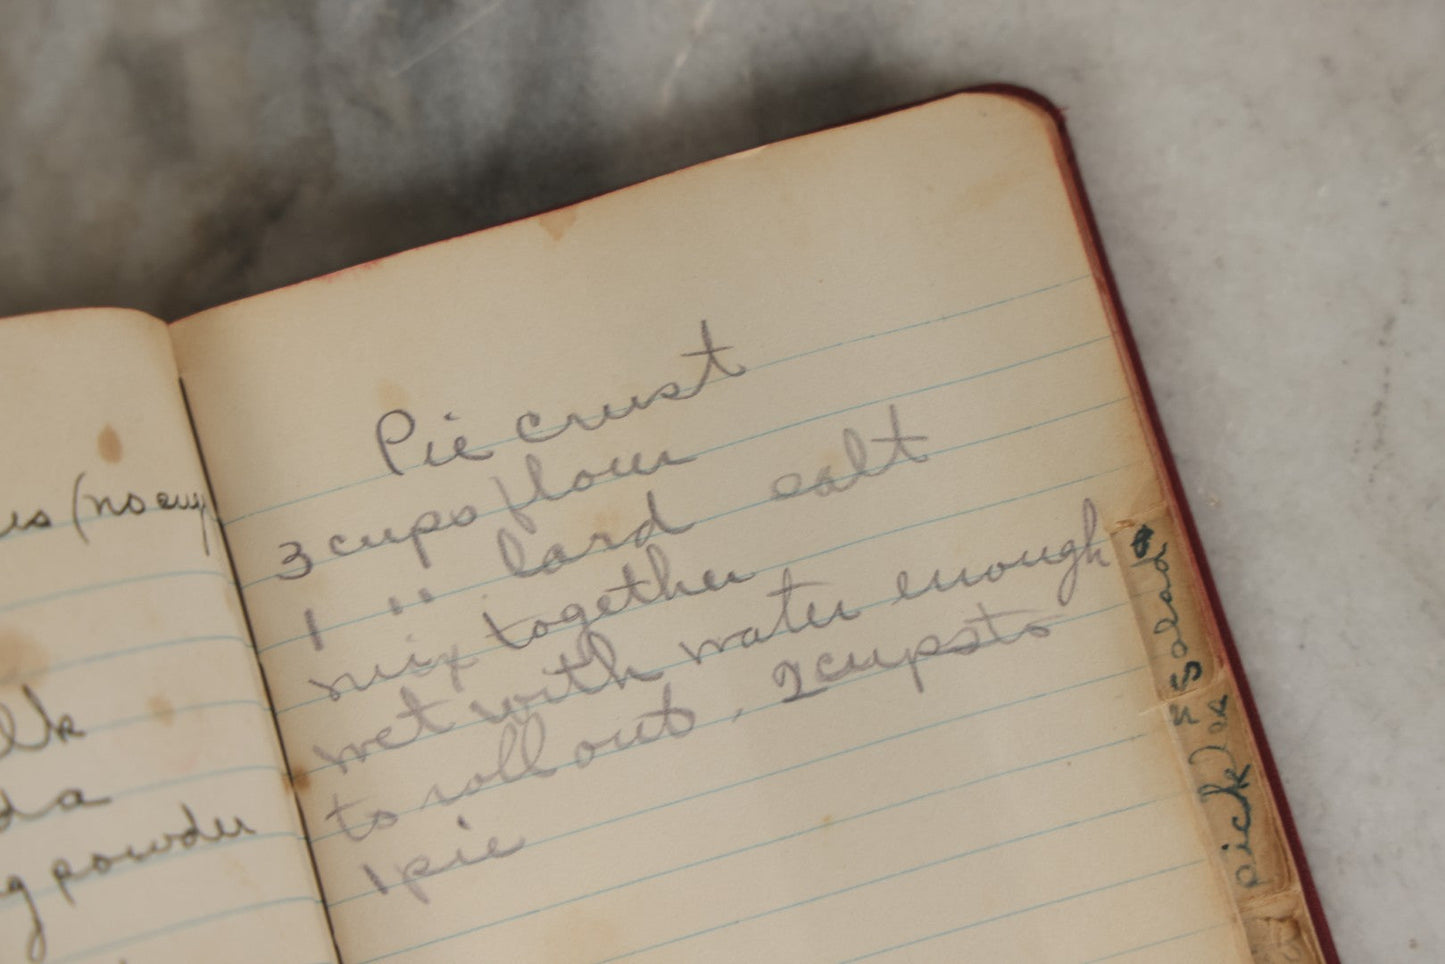 es (no eug)
lk
da
g powder
Pie crust
3 cups flour
1 " lard salt
mix together
wet with water enough
to roll out, 2 cups to
1 pie
Salad
Pickles